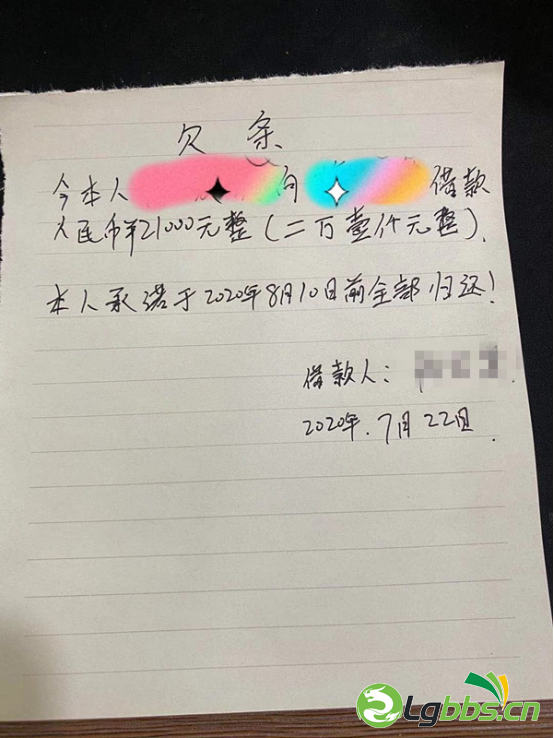 欠条
今本人 向 借款
人民币¥21000元整(二万壹仟元整).
本人承诺于2020年8月10日前全部归还!
借款人:
2020年.7月22日.
Lgbbs.cn